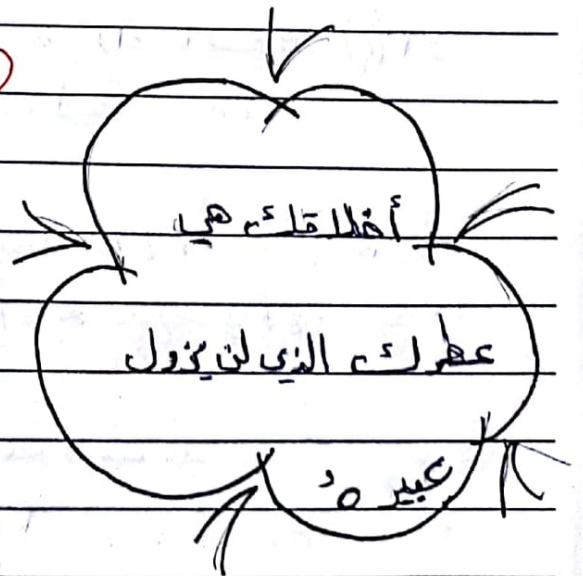 أخلاقك هي
عطرك الذي لن يزول
عبيرهُ